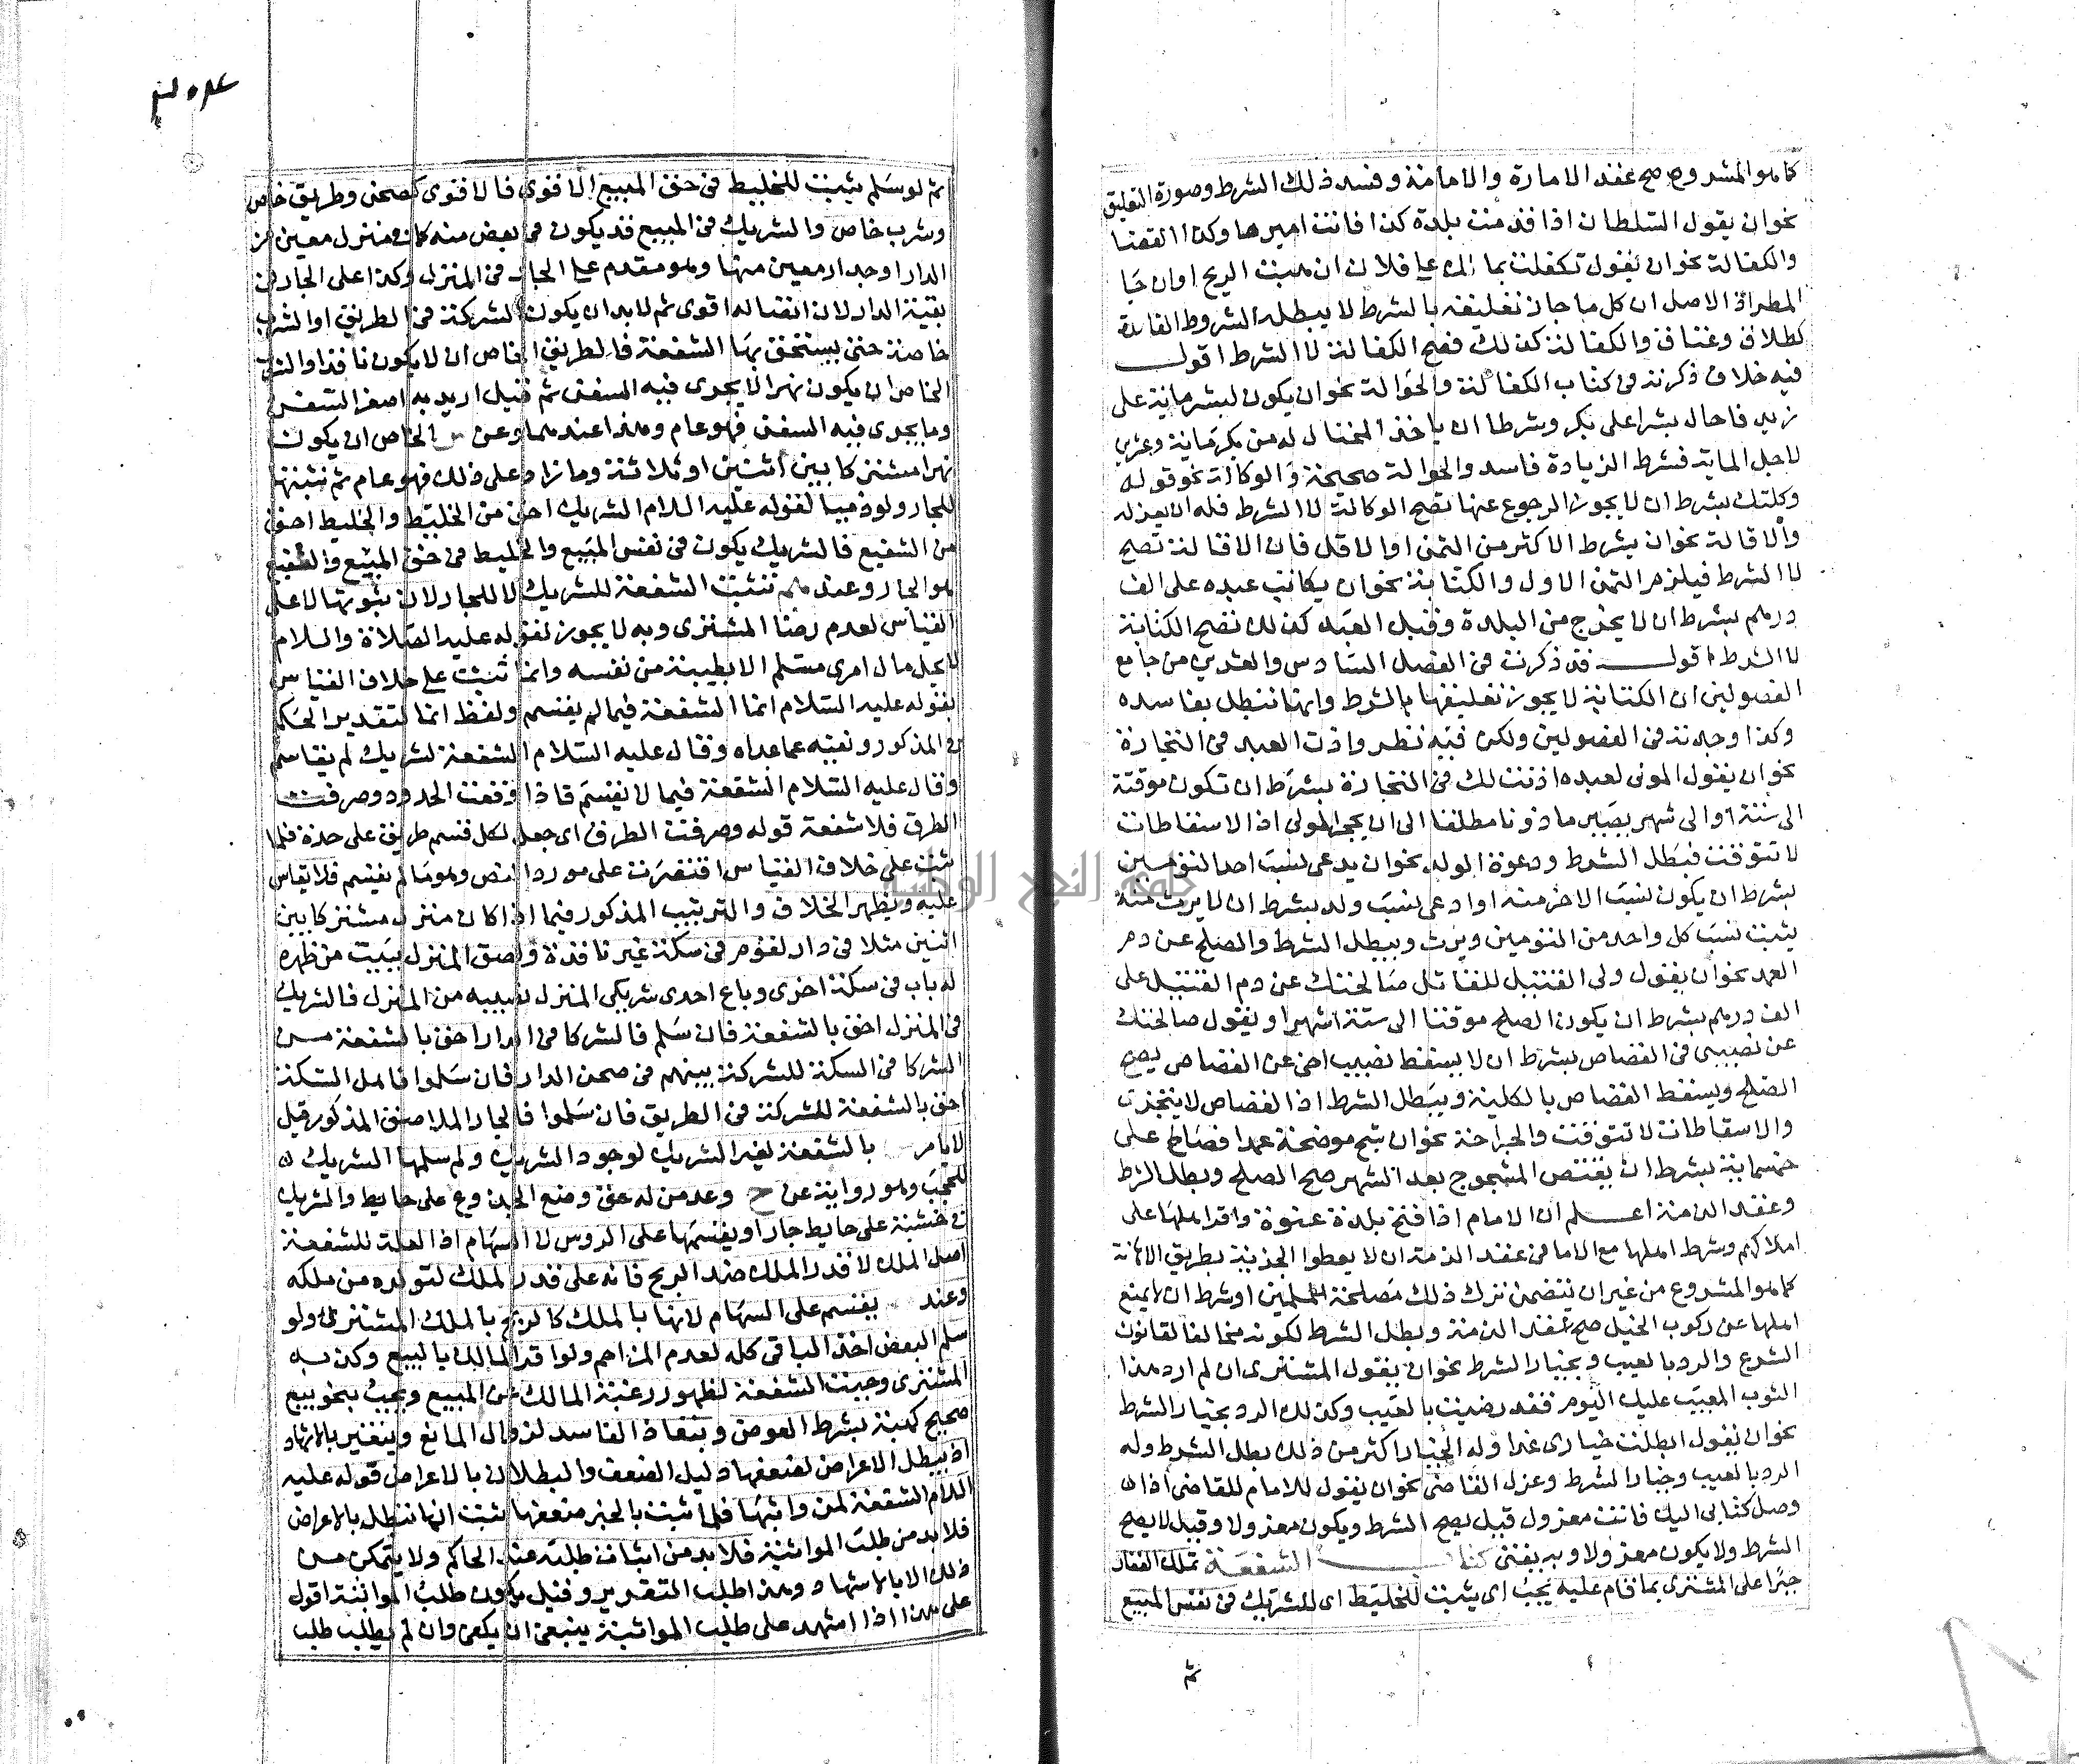 كما هو المشروع صح عقد الامارة والامامة وفسد ذلك الشرط وصورة التعليق
نحو ان يقول السلطان اذا قدمت بلدة كذا فانت اميرها وكذا القضا
والكفالة نحو ان يقول تكفلت بما لك على فلان ان هبت الريح او ان جا
المطر اذ الاصل ان كل ما جاز تعليقه بالشرط لا يبطله الشروط الفاسدة
كطلاق وعتاق والكفالة كذلك فصح الكفالة لا الشرط اقول
فيه خلاف ذكرته في كتاب الكفالة والحوالة نحو ان يكون لبشر ماية على
زيد فاحال بشرا على بكر وشرطا ان ياخذ المحتال له من بكر ماية وعشرين
لاجل الماية فشرط الزيادة فاسد والحوالة صحيحة والوكالة نحو قوله
وكلتك بشرط ان لا يجوز الرجوع عنها تصح الوكالة لا الشرط فله ان يعزله
والاقالة نحو ان بشرط الاكثر من الثمن او الاقل فان الاقالة تصح
لا الشرط فيلزم الثمن الاول والكتابة نحو ان يكاتب عبده على الف
درهم بشرط ان لا يخرج من البلدة وقبل العبد كذلك تصح الكتابة
لا الشرط اقول قد ذكرت في الفصل السادس والعشرين من جامع
الفصولين ان الكتابة لا يجوز تعليقها بالشرط وانها تبطل بفاسده
وكذا وجدته في الفصولين ولكن فيه نظر واذن العبد في التجارة
نحو ان يقول المولى لعبده اذنت لك في التجارة بشرط ان تكون موقتة
الى سنة او الى شهر يصير ماذونا مطلقا الى ان يحجر المولى اذ الاسقاطات
لا تتوقت فبطل الشرط ودعوة الولد نحو ان يدعى نسب احد التومين
بشرط ان يكون نسب الاخر منه او ادعى نسب ولد بشرط ان لا يرث منه
يثبت نسب كل واحد من التومين ويرث ويبطل الشرط والصلح عن دم
العمد نحو ان يقول ولي القتيل للقاتل صالحتك عن دم القتيل على
الف درهم بشرط ان يكون الصلح موقتا الى ستة اشهر او يقول صالحتك
عن نصيبي في القصاص بشرط ان لا يسقط نصيب اخي عن القصاص يصح
الصلح ويسقط القصاص بالكلية ويبطل الشرط اذ القصاص لا يتجزى
والاسقاطات لا تتوقت والجراحة نحو ان شج موضحة عمدا فصالح على
خمسماية بشرط ان يقتص المشجوج بعد الشهر صح الصلح وبطل الشرط
وعقد الذمة اعلم ان الامام اذا فتح بلدة عنوة واقر اهلها على
املاكهم وشرط اهلها مع الامام في عقد الذمة ان لا يعطوا الجزية بطريق الاهانة
كما هو المشروع من غير ان يتضمن ترك ذلك مصلحة المسلمين او شرط ان لا يمنع
اهلها عن ركوب الخيل صح عقد الذمة وبطل الشرط لكونه مخالفا لقانون
الشرع والرد بالعيب وبخيار الشرط نحو ان يقول المشتري ان لم ارد هذا
الثوب المعيب عليك اليوم فقد رضيت بالعيب وكذلك الرد بخيار الشرط
نحو ان يقول ابطلت خياري غدا وله الخيار اكثر من ذلك بطل الشرط وله
الرد بالعيب وخيار الشرط وعزل القاضى نحو ان يقول الامام للقاضى اذا
وصل كتابى اليك فانت معزول قيل يصح الشرط ويكون معزولا وقيل لا يصح
الشرط ولا يكون معزولا وبه يفتى كتاب الشفعة تملك العقار
جبرا على المشترى بما قام عليه يجب اى يثبت للخليط اى للشريك في نفس المبيع
ثم
ثم لو سلم يثبت للخليط في حق المبيع الاقوى فالاقوى كصحن وطريق خاص
وشرب خاص والشريك في المبيع قد يكون في بعض منه كما في منزل معين من
الدار او جدار معين منها وهو مقدم على الجار في المنزل وكذا على الجار في
بقية الدار لان اتصاله اقوى ثم لا بد ان يكون الشركة في الطريق او الشرب
خاصة حتى يستحق بها الشفعة فالطريق الخاص ان لا يكون نافذا والشرب
الخاص ان يكون نهرا لا يجرى فيه السفن ثم قيل اريد به اصغر السفن
وما يجرى فيه السفن فهو عام وهذا عندهما وعن س الخاص ان يكون
نهرا مشتركا بين اثنين او ثلاثة وما زاد على ذلك فهو عام ثم نثبتها
للجار ولو ذميا لقوله عليه السلام الشريك احق من الخليط والخليط احق
من الشفيع فالشريك يكون في نفس المبيع والخليط في حق المبيع والشفيع
هو الجار وعند تثبت الشفعة للشريك لا للجار لان ثبوتها لا على
القياس لعدم رضا المشترى وبه لا يجوز لقوله عليه الصلاة والسلام
لا يحل مال امرى مسلم الا بطيبة من نفسه وانما ثبت على خلاف القياس
بقوله عليه السلام انما الشفعة فيما لم يقسم ولفظ انما لتقدير الحكم
في المذكور ونفيه عما عداه وقال عليه السلام الشفعة لشريك لم يقاسم
وقال عليه السلام الشفعة فيما لا يقسم فاذا وقعت الحدود وصرفت
الطرق فلا شفعة قوله وصرفت الطرق اى جعل لكل قسم طريق على حدة فلما
ثبت على خلاف القياس اقتصرت على مورد النص وهو ما لم يقسم فلا يقاس
عليه ويظهر الخلاف والترتيب المذكور فيما اذا كان منزل مشتركا بين
اثنين مثلا في دار لقوم في سكة غير نافذة ولصق المنزل ببيت من ظهره
له باب في سكة اخرى وباع احدى شريكى المنزل نصيبه من المنزل فالشريك
في المنزل احق بالشفعة فان سلم فالشركا في الدار احق بالشفعة من
الشركا في السكة للشركة بينهم في صحن الدار فان سلموا فاهل السكة
احق بالشفعة للشركة في الطريق فان سلموا فالجار الملاصق المذكور قيل
لا يامر بالشفعة لغير الشريك لوجود الشريك ولم سلمها الشريك
للحجب وهو رواية عن ح وعد من له حق وضع الجذوع على حايط والشريك
في خشبة على حايط جارا ويقسمها على الروس لا السهام اذ العلة للشفعة
اصل الملك لا قدر الملك ضد الربح فانه على قدر الملك لتولده من ملكه
وعند يقسم على السهام لانها بالملك كالربح بالملك المشترك ولو
سلم البعض اخذ الباقى كله لعدم المزاحم ولو اقر المالك بالبيع وكذبه
المشترى وجبت الشفعة لظهور رغبة المالك عن المبيع ويجب بنحو بيع
صحيح كهبة بشرط العوض وبنفاذ الفاسد لزوال المانع ويتقرر بالاشهاد
اذ يبطل الاعراض لضعفها دليل الضعف والبطلان بالاعراض قوله عليه
السلام الشفعة لمن واثبها فلما ثبت بالخبر ضعفها ثبت انها تبطل بالاعراض
فلا بد من طلب المواثبة فلا بد من اثبات طلبه عند الحاكم ولا يتمكن من
ذلك الا بالاشهاد وهذا طلب التقرير وقيل يكون طلب المواثبة اقول
على هذا اذا اشهد على طلب المواثبة ينبغى ان يكفى وان لم يطلب طلب
جامعة النجاح الوطنية